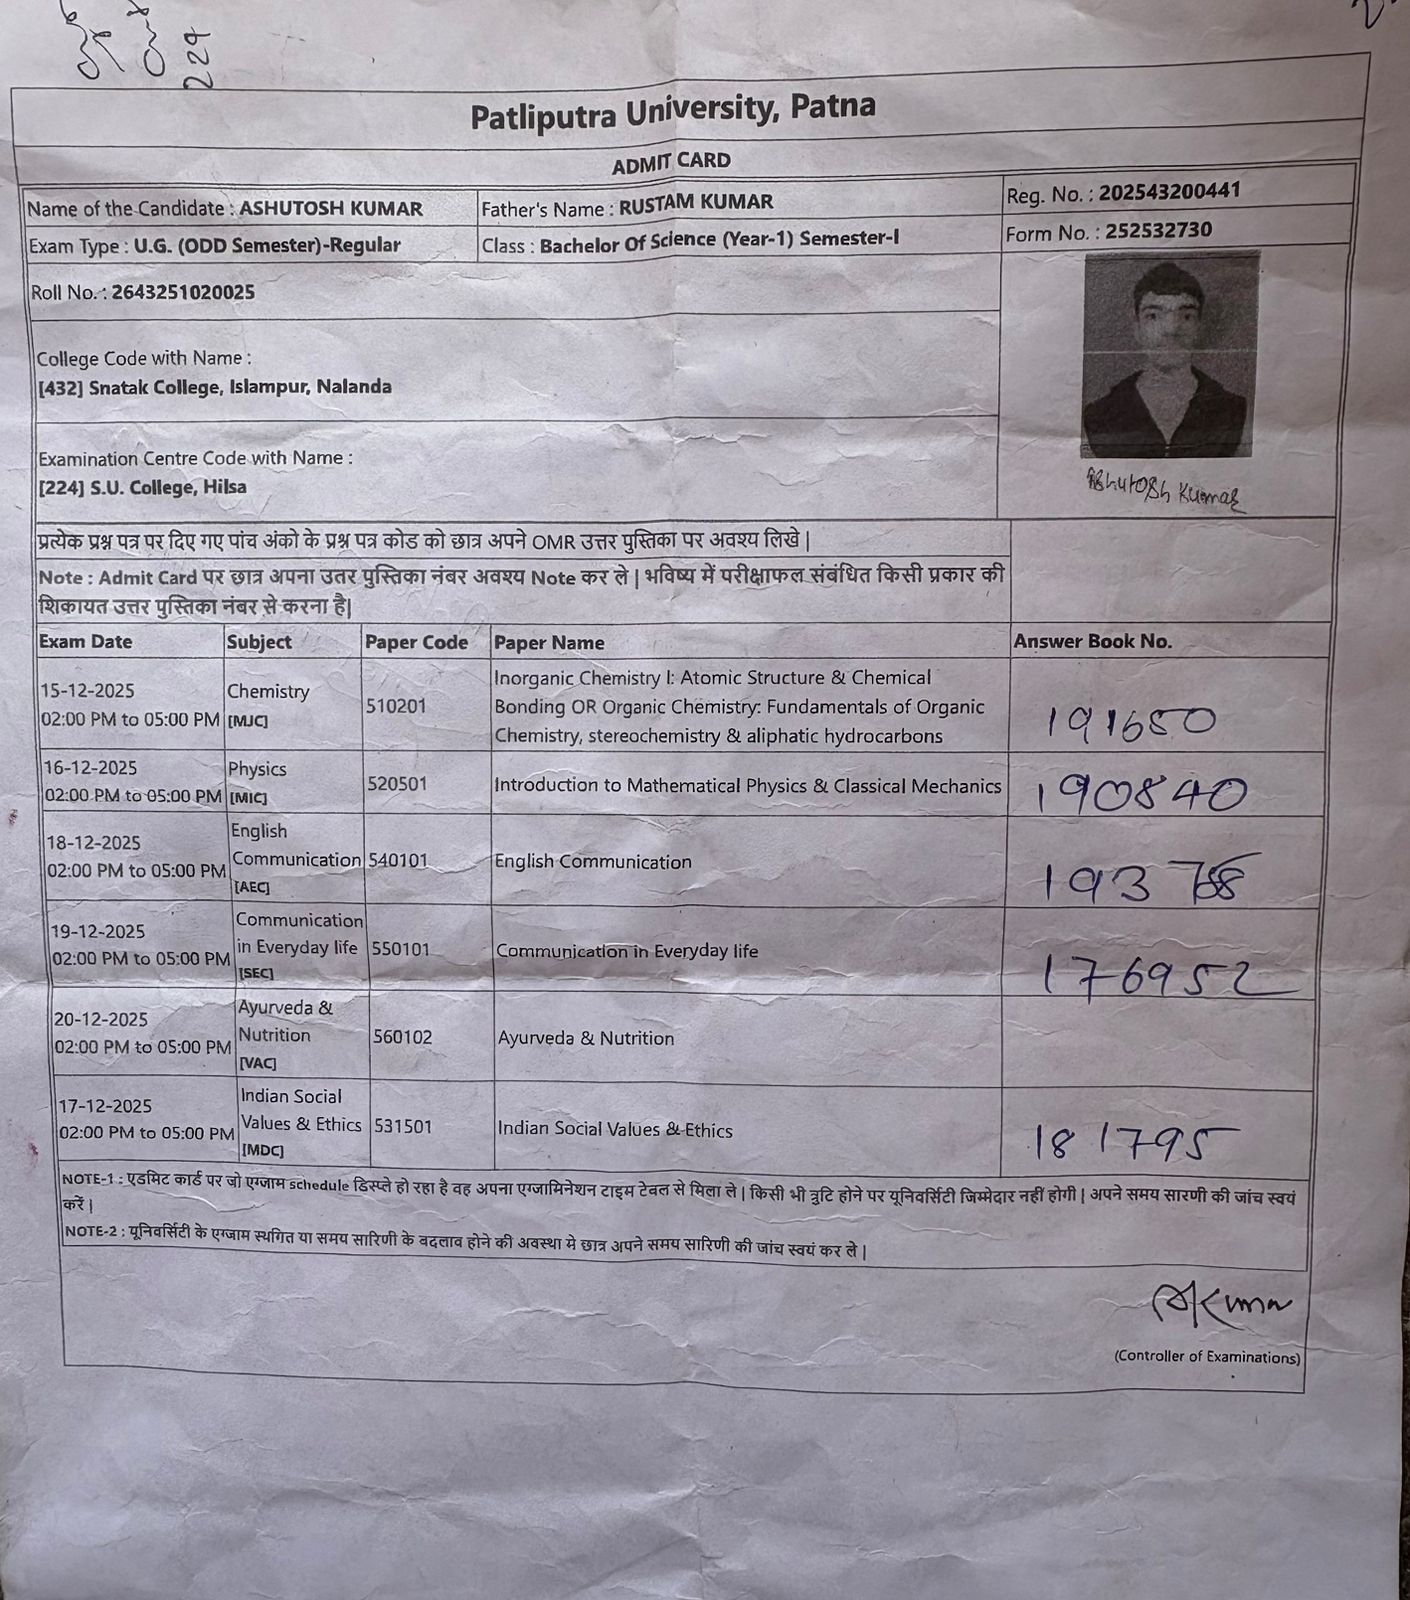 224
Patliputra University, Patna
ADMIT CARD
Name of the Candidate : ASHUTOSH KUMAR
Father's Name : RUSTAM KUMAR
Reg. No. : 202543200441
Exam Type : U.G. (ODD Semester)-Regular
Class : Bachelor Of Science (Year-1) Semester-I
Form No. : 252532730
Roll No. : 2643251020025
College Code with Name :
[432] Snatak College, Islampur, Nalanda
Examination Centre Code with Name :
[224] S.U. College, Hilsa
Ashutosh Kumar
प्रत्येक प्रश्न पत्र पर दिए गए पांच अंको के प्रश्न पत्र कोड को छात्र अपने OMR उत्तर पुस्तिका पर अवश्य लिखे |
Note : Admit Card पर छात्र अपना उतर पुस्तिका नंबर अवश्य Note कर ले | भविष्य में परीक्षाफल संबंधित किसी प्रकार की
शिकायत उत्तर पुस्तिका नंबर से करना है|
Exam Date Subject Paper Code Paper Name Answer Book No.
15-12-2025
02:00 PM to 05:00 PM
Chemistry
[MJC]
510201
Inorganic Chemistry I: Atomic Structure & Chemical
Bonding OR Organic Chemistry: Fundamentals of Organic
Chemistry, stereochemistry & aliphatic hydrocarbons
191650
16-12-2025
02:00 PM to 05:00 PM
Physics
[MIC]
520501
Introduction to Mathematical Physics & Classical Mechanics
190840
18-12-2025
02:00 PM to 05:00 PM
English
Communication
[AEC]
540101
English Communication
19-12-2025
02:00 PM to 05:00 PM
Communication
in Everyday life
[SEC]
550101
Communication in Everyday life
176952
20-12-2025
02:00 PM to 05:00 PM
Ayurveda &
Nutrition
[VAC]
560102
Ayurveda & Nutrition
17-12-2025
02:00 PM to 05:00 PM
Indian Social
Values & Ethics
[MDC]
531501
Indian Social Values & Ethics
181795
NOTE-1 : एडमिट कार्ड पर जो एग्जाम schedule डिस्प्ले हो रहा है वह अपना एग्जामिनेशन टाइम टेबल से मिला ले | किसी भी त्रुटि होने पर यूनिवर्सिटी जिम्मेदार नहीं होगी | अपने समय सारणी की जांच स्वयं
करें |
NOTE-2 : यूनिवर्सिटी के एग्जाम स्थगित या समय सारिणी के बदलाव होने की अवस्था मे छात्र अपने समय सारिणी की जांच स्वयं कर ले |
(Controller of Examinations)